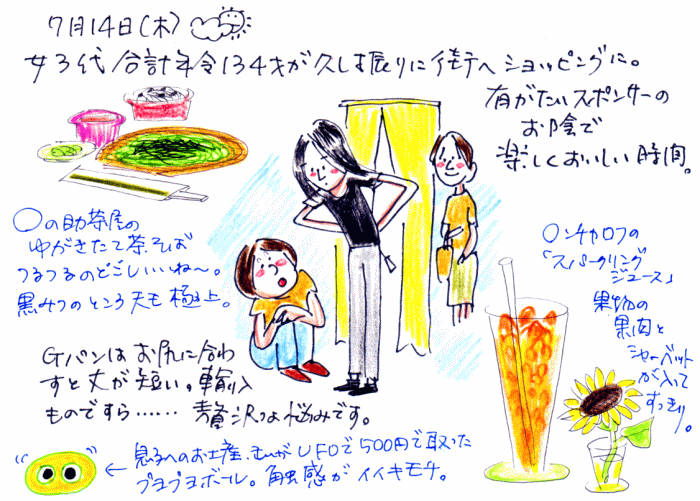 7月14日(木)
女3代合計年令134才が久し振りに街へショッピングに。
有がたいスポンサーの
お陰で
楽しくおいしい時間。
〇の助茶屋の
ゆがきたて茶そば
つるつるのどごしいいね〜。
黒みつのところ天も極上。
〇ンチャロフの
「スパークリング
ジュース」
果物の
果肉と
シャーベット
が入って
すっきり。
Gパンはお尻に合わ
すと丈が短い。輸入
ものですら……贅沢な悩みです。
← 息子へのお土産、むすめがUFOで500円で取った
プヨプヨボール。触感がイイキモチ。